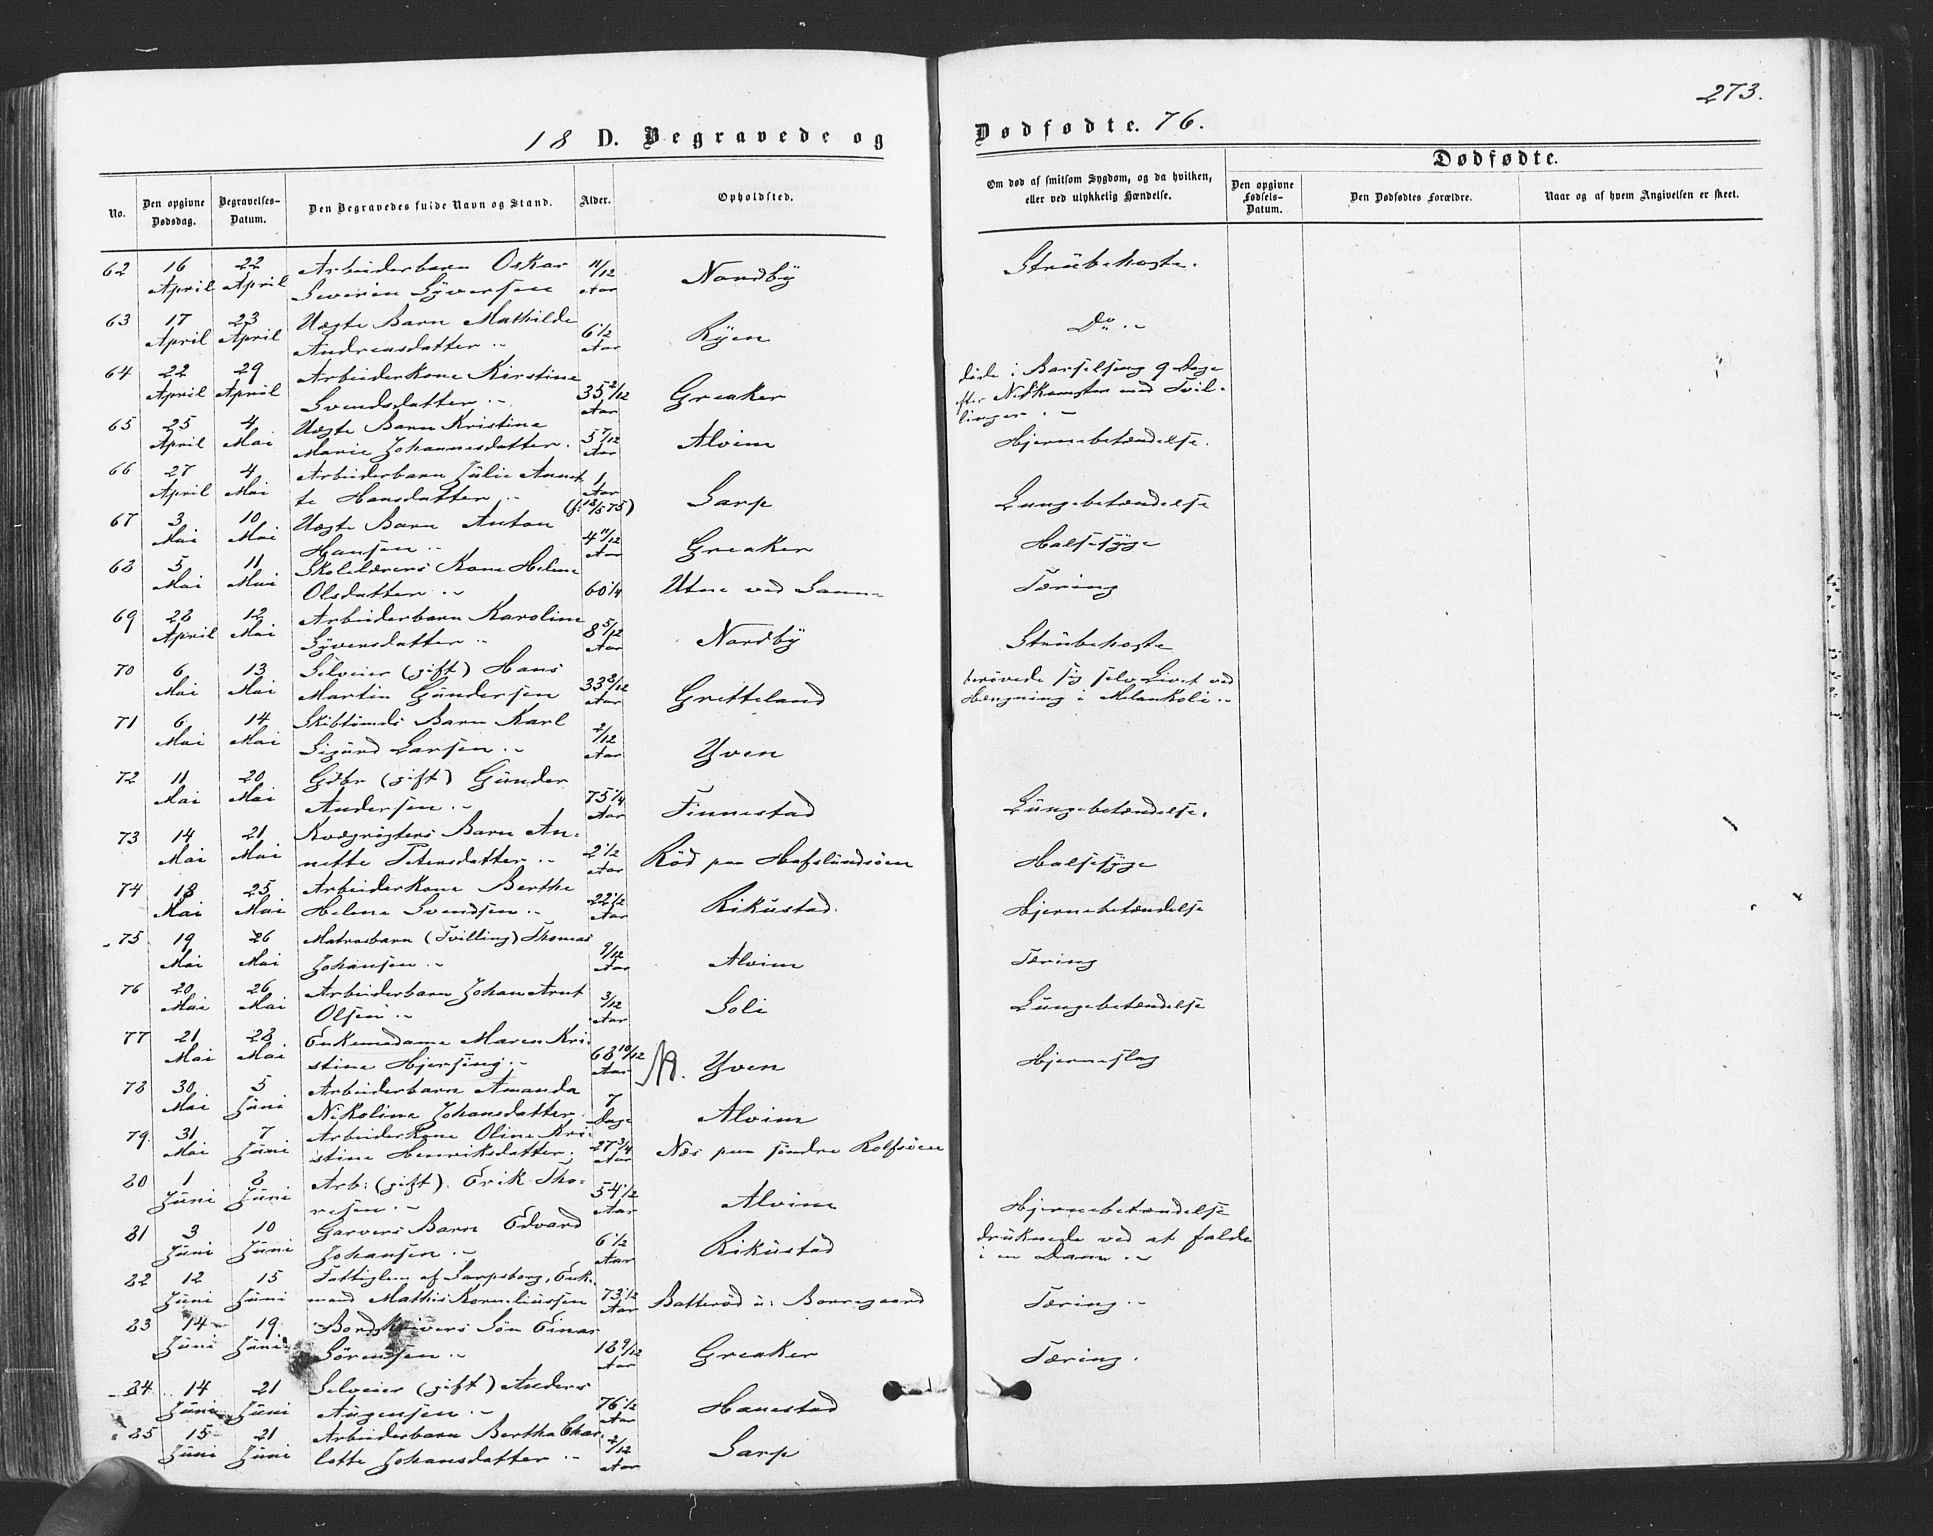 273.
18 D. Begravede og Dødfødte. 76.
Dødfødte.
No. Den opgivne Dødsdag. Begravelses-Datum. Den Begravedes fulde Navn og Stand. Alder. Opholdsted. Om død af smitsom Sygdom, og da hvilken, eller ved ulykkelig Hændelse. Den opgivne Fødsels-Datum. Den Dødfødtes Forældre. Naar og af hvem Angivelsen er skeet.
62 16 22 Arbeiderbarn Oskar 11/12 Nordby Strubehoste.
April April Severin Syversen Aar
63 17 23 Uægte Barn Mathilde 6 1/2 Ryen Do ..
April April Andreasdatter .. Aar
64 22 29 Arbeiderkone Kirstine 35 2/12 Greaker døde i Barselseng 9 Dage
April April Svendsdatter .. Aar efter Nedkomsten med Tvil-
linger ..
65 25 4 Uægte Barn Kristine 5 7/12 Alvim Hjernebetændelse.
April Mai Marie Johannesdatter. Aar
66 27 4 Arbeiderbarn Julie Annet 1 Sarp Lungebetændelse
April Mai te Hansdatter .. Aar (f: 12/5 75)
67 3 10 Uægte Barn Anton 4 11/12 Greaker Halsesyge
Mai Mai Hansen .. Aar
68 5 11 Skolelærers Kone Helene
Mai Mai Olsdatter .. 60 1/4 Utne ved Sanne Tæring
69 28 12 Arbeiderbarn Karoline 8 5/12 Nordby Strubehoste
April Mai Syversdatter .. Aar
70 6 13 Selveier (gift) Hans 33 8/12 Gretteland berøvede sig selv Livet ved
Mai Mai Martin Gundersen Aar Hængning i Melankoli ..
71 6 14 Skibtømds Barn Karl 2/12 Yven
Mai Mai Sigurd Larsen .. Aar
72 11 20 Gdbr (gift) Gunder 75 1/4 Finnestad Lungebetændelse.
Mai Mai Andersen .. Aar
73 14 21 Kvægrøgters Barn An- 2 1/2 Rød paa Hafslundsøen Halsesyge
Mai Mai nette Petersdatter .. Aar
74 18 25 Arbeiderkone Berthe 22 1/2 Rikustad. Hjernebetændelse
Mai Mai Helene Svendsen .. Aar
75 19 26 Matrosbarn (Tvilling) Thomas 9/12 Alvim Tæring
Mai Mai Johansen .. Aar
76 20 26 Arbeiderbarn Johan Arnt 3/12 Soli Lungebetændelse
Mai Mai Olsen .. Aar
77 21 28 Enkemadame Maren Kri- 68 10/12 Yven Hjerneslag
Mai Mai stine Hjersing .. Aar
78 30 5 Arbeiderbarn Amanda 7 Alvim
Mai Juni Nikoline Johansdatter. Dage
79. 31 7 Arbeiderkone Oline Kri- 27 3/4 Næs paa søndre Rolfsøen
Mai Juni stine Henriksdatter. Aar
80 1 8 Arb: (gift). Erik Tho- 54 1/2 Alvim Hjernebetændelse
Juni Juni resen .. Aar
81 3 10 Garvers Barn Edvard 6 1/2 Rikustad druknede ved at falde
Juni Juni Johansen .. Aar i en Dam ..
82 12 15 Fattiglem af Sarpsborg, Enk-
Juni Juni mand Mathis Korneliussen 73 1/2 Aar Batterød u: Borregaard Tæring ..
83 14 19 Bordskrivers Søn Einar 18 9/12 Greaker Tæring.
Juni Juni Sørensen .. Aar
84 14 21 Selveier (gift) Anders 76 1/2 Hanestad
Juni Juni Augensen .. Aar
85 15 21 Arbeiderbarn Bertha Char- 2/12 Sarp
Juni Juni lotte Johansdatter .. Aar